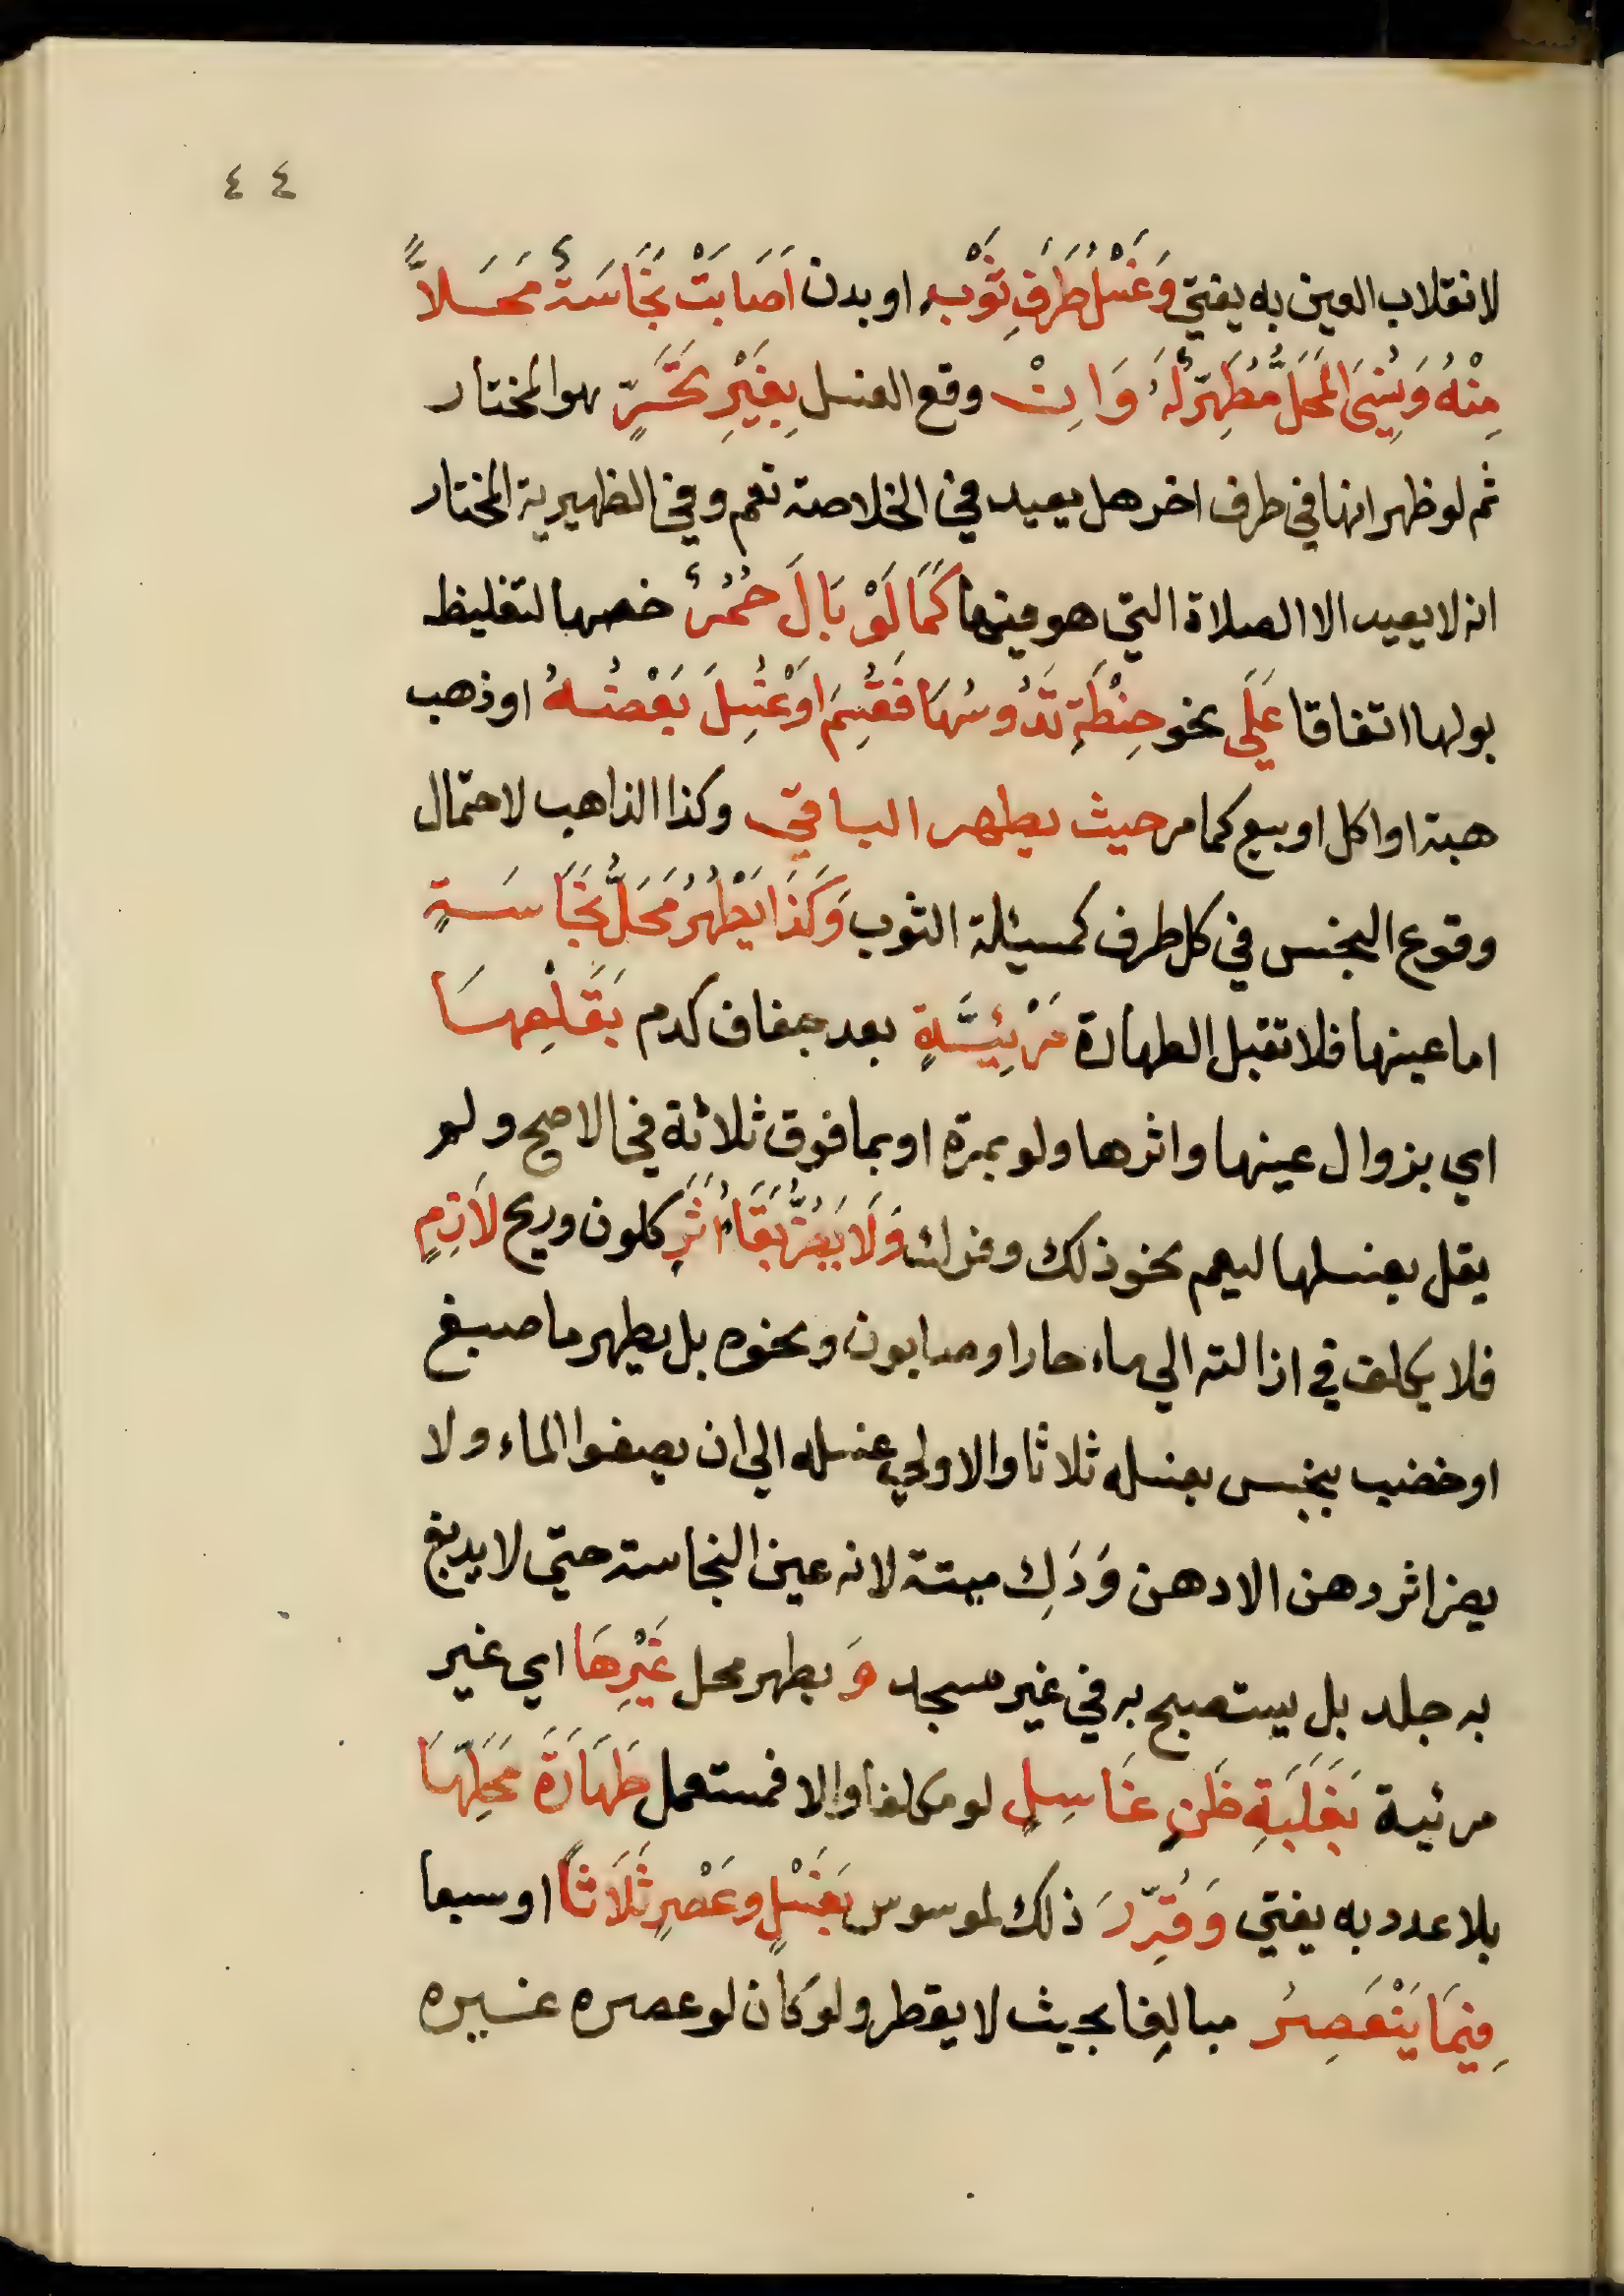 ٤٤
لانقلاب العين به يفتي وَغَسْلُ طَرَفِ ثَوْبٍ او بدن اَصَابَتْ نَجَاسَةٌ مَحَلاًّ
مِنْهُ وَنُسِيَ المَحَلُّ مُطَهِّرٌ لَهُ وَاِنْ وقع الغسل بِغَيْرِ تَحَرٍّ هو المختار
ثم لو ظهر انها في طرف اخر هل يعيد في الخلاصة نعم وفي الظهيرية المختار
انه لا يعيد الا الصلاة التي هو فيها كَمَا لَوْ بَالَ حُمُرٌ خصها لتغليظ
بولها اتفاقا عَلَى نحو حِنْطَةٍ تَدُوسُهَا فَقُسِمَ اَوْ غُسِلَ بَعْضُهُ او ذهب
هبة او اكل او بيع كما مر حيث يطهر الباقي وكذا الذاهب لاحتمال
وقوع النجس في كل طرف كمسئلة الثوب وَكَذَا يَطْهُرُ مَحَلُّ نَجَاسَةٍ
اما عينها فلا تقبل الطهارة مَرْئِيَّةٍ بعد جفاف كدم بَقَلْعِهَا
اي بزوال عينها واثرها ولو بمرة او بما فوق ثلاثة في الاصح ولم
يقل بغسلها ليعم نحو ذلك وفرك وَلَا يَضُرُّ بَقَاءُ اَثَرٍ كلون وريح لَازِمٍ
فلا يكلف في ازالته الي ماء حار او صابون ونحوه بل يطهر ما صبغ
او خضب بنجس بغسله ثلاثا والاولي غسله الي ان يصفوا الماء ولا
يضر اثر دهن الا دهن وَدَكِ ميتة لانه عين النجاسة حتي لا يدبغ
به جلد بل يستصبح به في غير مسجد وَ يطهر محل غَيْرِهَا اي غير
مرئية بَغَلَبَةِ ظَنِ غَاسِلٍ لو مكلفا والا فمستعمل طَهَارَةَ مَحَلِّهَا
بلا عدد به يفتي وَقُدِّرَ ذلك لموسوس بَغَسْلٍ وعَصْرٍ ثَلَاثاً او سبعا
فِيْمَا يَنْعَصِرُ مبالغا بحيث لا يقطر ولو كان لو عصره غيره